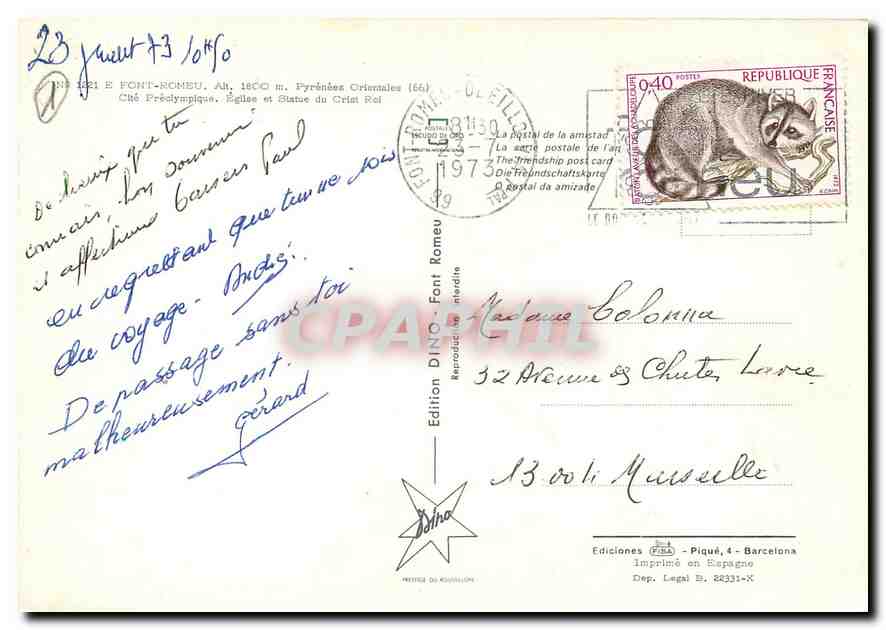 23 juillet 73 10H50
1
No 1221 E FONT-ROMEU. Alt. 1800 m. Pyrénées Orientales (66)
Cité Préolympique. Église et Statue du Crist Roi
De lieux que tu
connais, bon souvenir
et affectueux baisers Paul
en regrettant que tu ne sois
du voyage. André.
De passage sans toi
malheureusement.
Gérard
FONT ROMEU-ODEILLO
18H30
23-7
1973
La postal de la amistad
La carte postale de l'am
The friendship post card
Die Freundschaftskarte
O postal da amizade
0,40 POSTES RÉPUBLIQUE FRANÇAISE
RATON LAVEUR DE LA GUADELOUPE
1973
Edition DINO - Font Romeu
Reproduction interdite
CPAPHIL
Madame Colonna
32 Avenue des Chutes Lavie
13004 Marseille
Dino
PRESTIGE DU ROUSSILLON
Ediciones FISA - Piqué, 4 - Barcelona
Imprimé en Espagne
Dep. Legal B. 22331-X